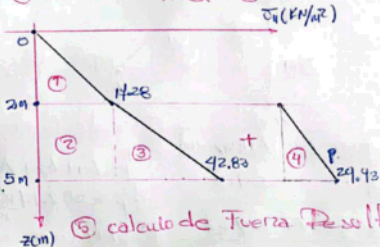 σH (KN/m²)
0
①
2m
17.28
②
③
+
④
P.
42.83
5m
29.43
z(m)
⑤ calculo de Fuerza Result